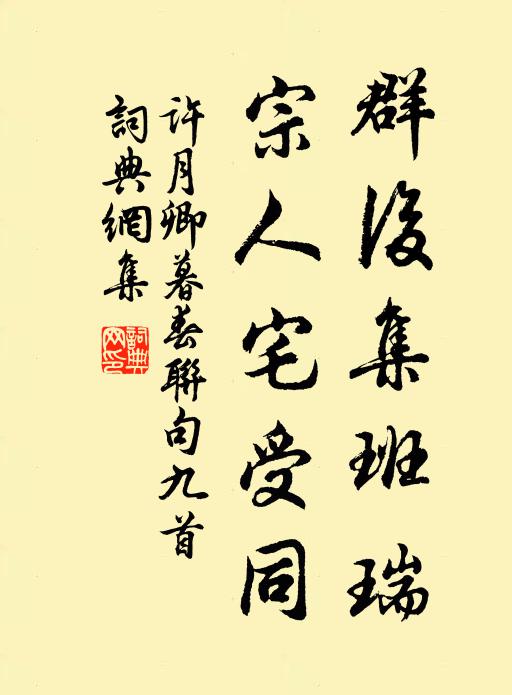 群後集班瑞
宗人宅受同
許月卿暮春聯句九首
詞典網集
詞典網印